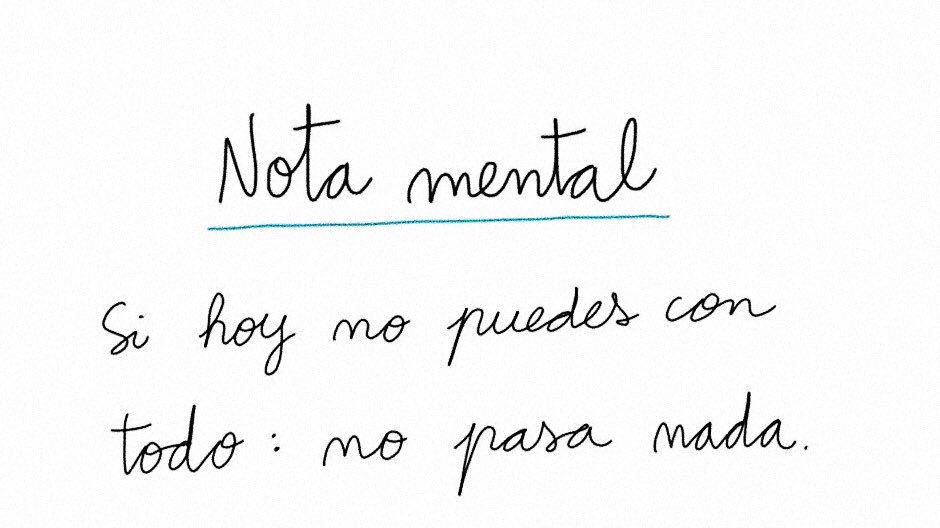 Nota mental
Si hoy no puedes con
todo: no pasa nada.